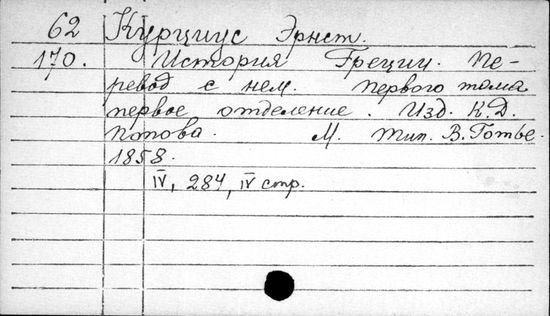 62 Курциус Эрнст.
170. История Греции. Пе-
ревод с нем. первого тома
первое отделение. Изд. К.Д.
Попова. М. Тип. В. Готье.
1858.
IV, 284, IV стр.